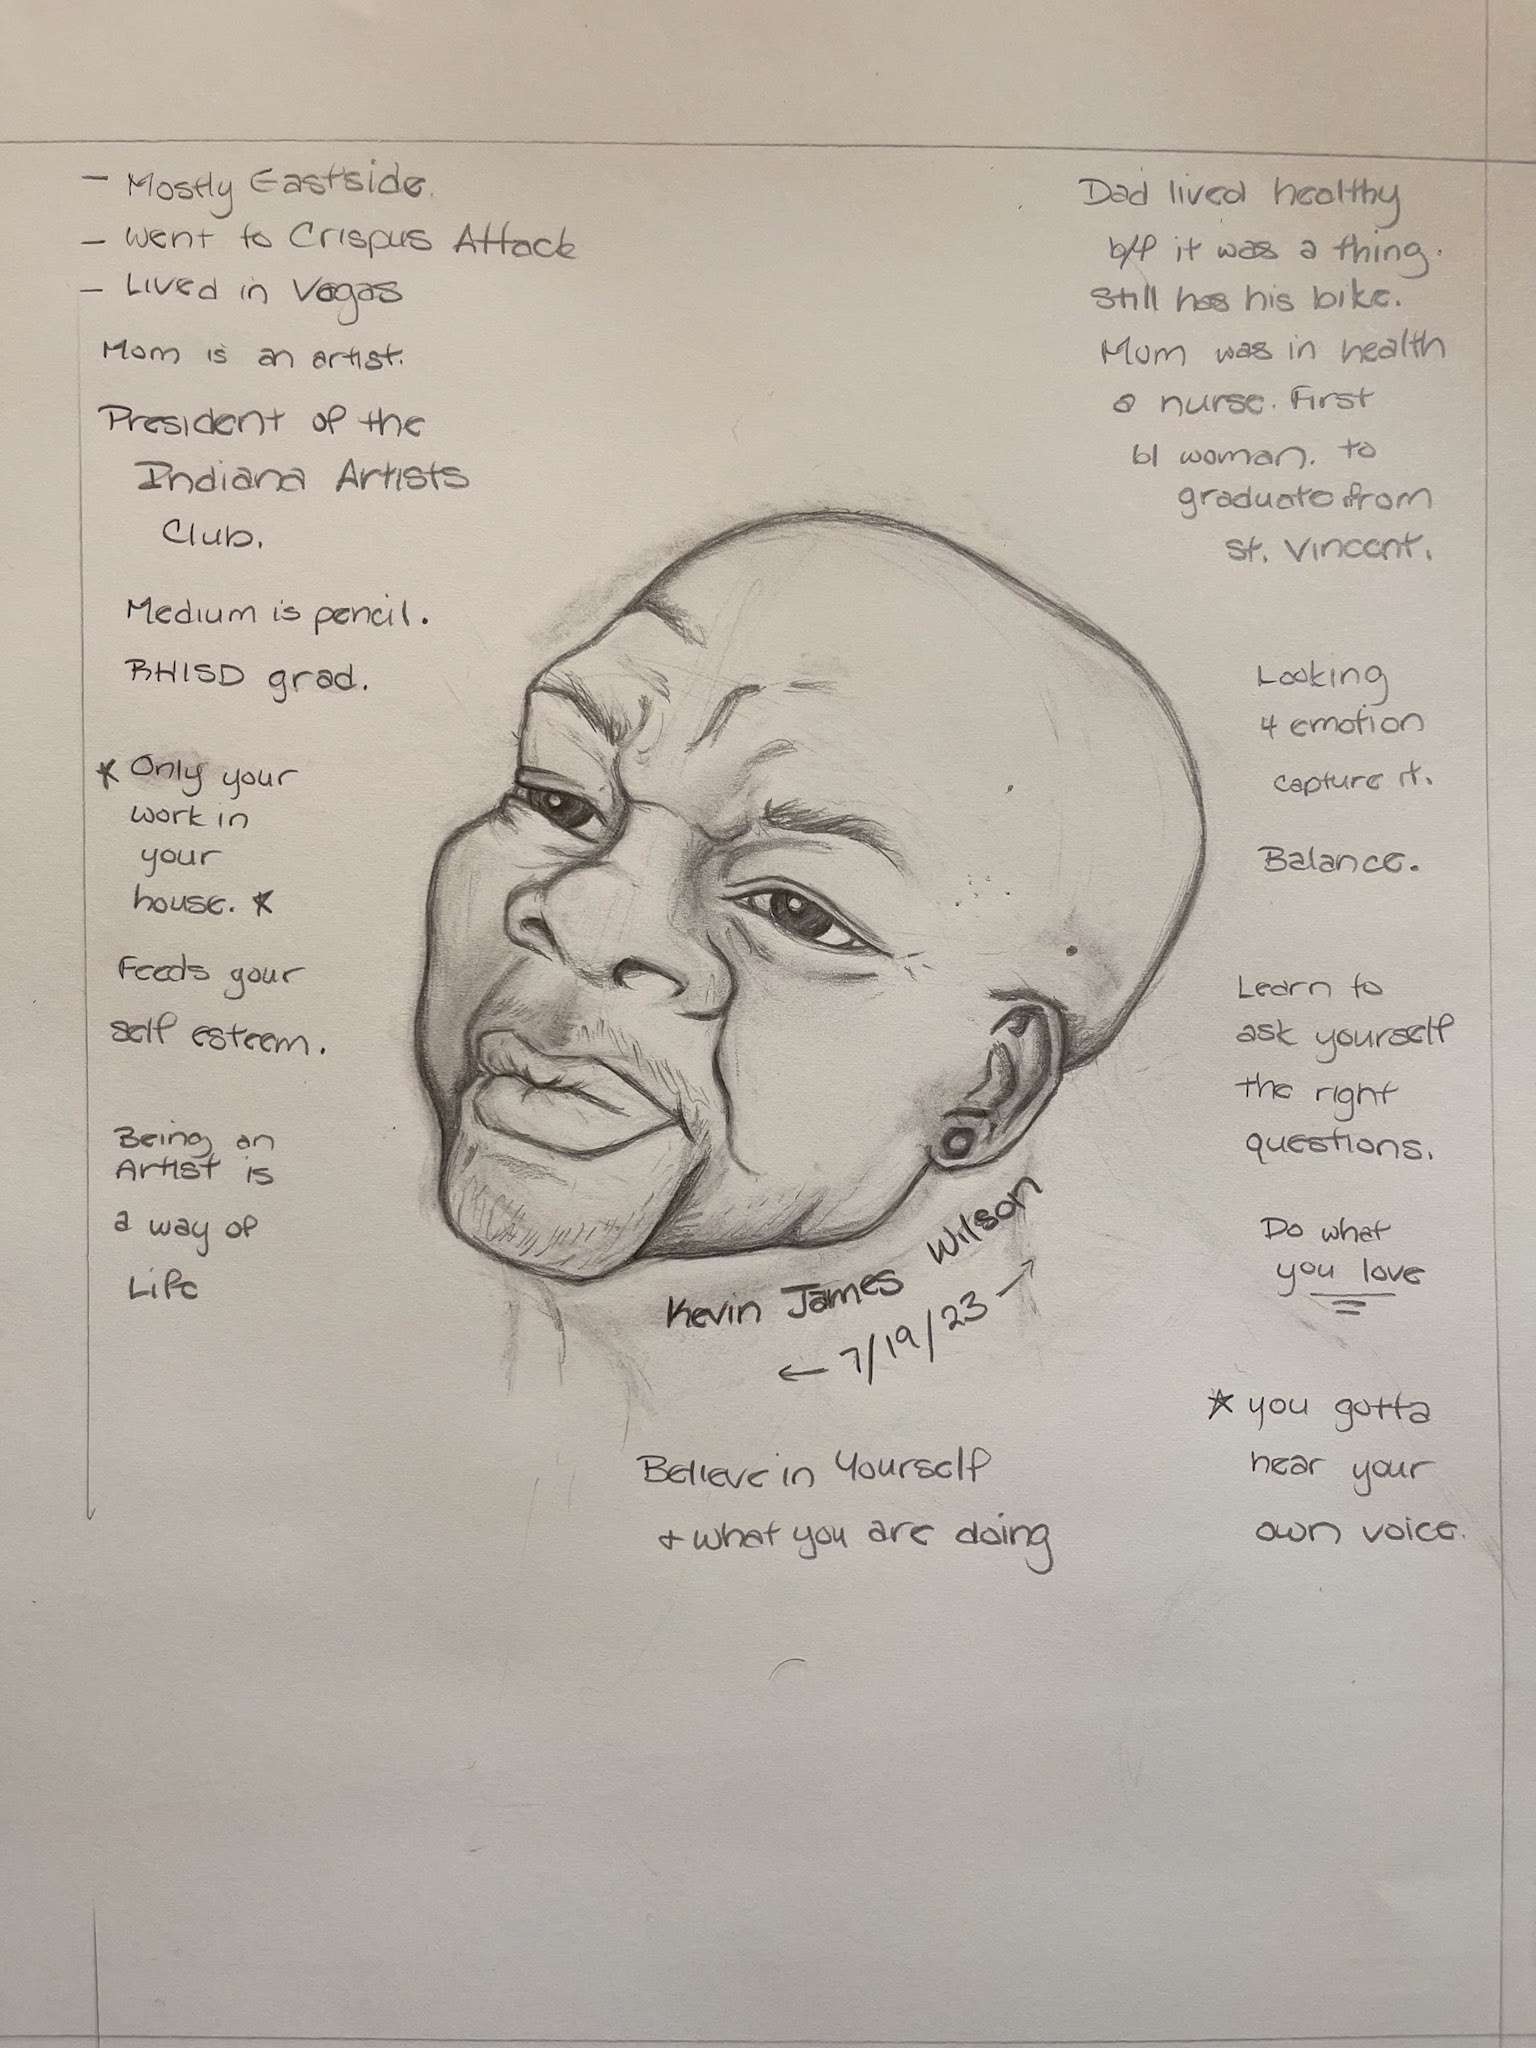 - Mostly Eastside.
- went to Crispus Attack
- Lived in Vegas
Mom is an artist.
President of the
Indiana Artists
Club.
Medium is pencil.
BHISD grad.
* Only your
work in
your
house. *
Feeds your
self esteem.
Being an
Artist is
a way of
Life
Dad lived healthy
b/f it was a thing.
Still has his bike.
Mom was in health
a nurse. First
bl woman. to
graduate from
St. Vincent.
Looking
4 emotion
capture it.
Balance.
Learn to
ask yourself
the right
questions.
Do what
you love
* you gotta
hear your
own voice.
Kevin James Wilson
← 7/19/23 →
Believe in Yourself
+ what you are doing